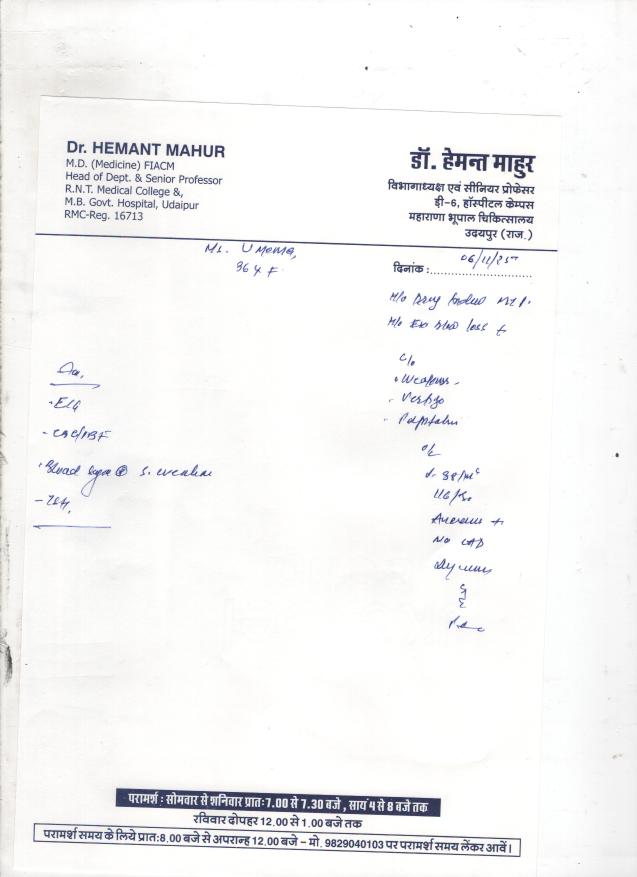 Dr. HEMANT MAHUR
M.D. (Medicine) FIACM
Head of Dept. & Senior Professor
R.N.T. Medical College &,
M.B. Govt. Hospital, Udaipur
RMC-Reg. 16713
डॉ. हेमन्त माहुर
विभागाध्यक्ष एवं सीनियर प्रोफेसर
डी-6, हॉस्पीटल केम्पस
महाराणा भूपाल चिकित्सालय
उदयपुर (राज.)
Ms. Umema,
36 Y F
दिनांक : 06/11/25
H/o
H/o loss +
C/o
• Weakness
- Vertigo
- Palpitation
O/E
No LAD
- ECG
- CBC/PBF
• Blood Sugar S. creatinine
- TSH,
परामर्श : सोमवार से शनिवार प्रातः 7.00 से 7.30 बजे , सायं 4 से 8 बजे तक
रविवार दोपहर 12.00 से 1.00 बजे तक
परामर्श समय के लिये प्रात:8.00 बजे से अपरान्ह 12.00 बजे - मो. 9829040103 पर परामर्श समय लेंकर आवें।